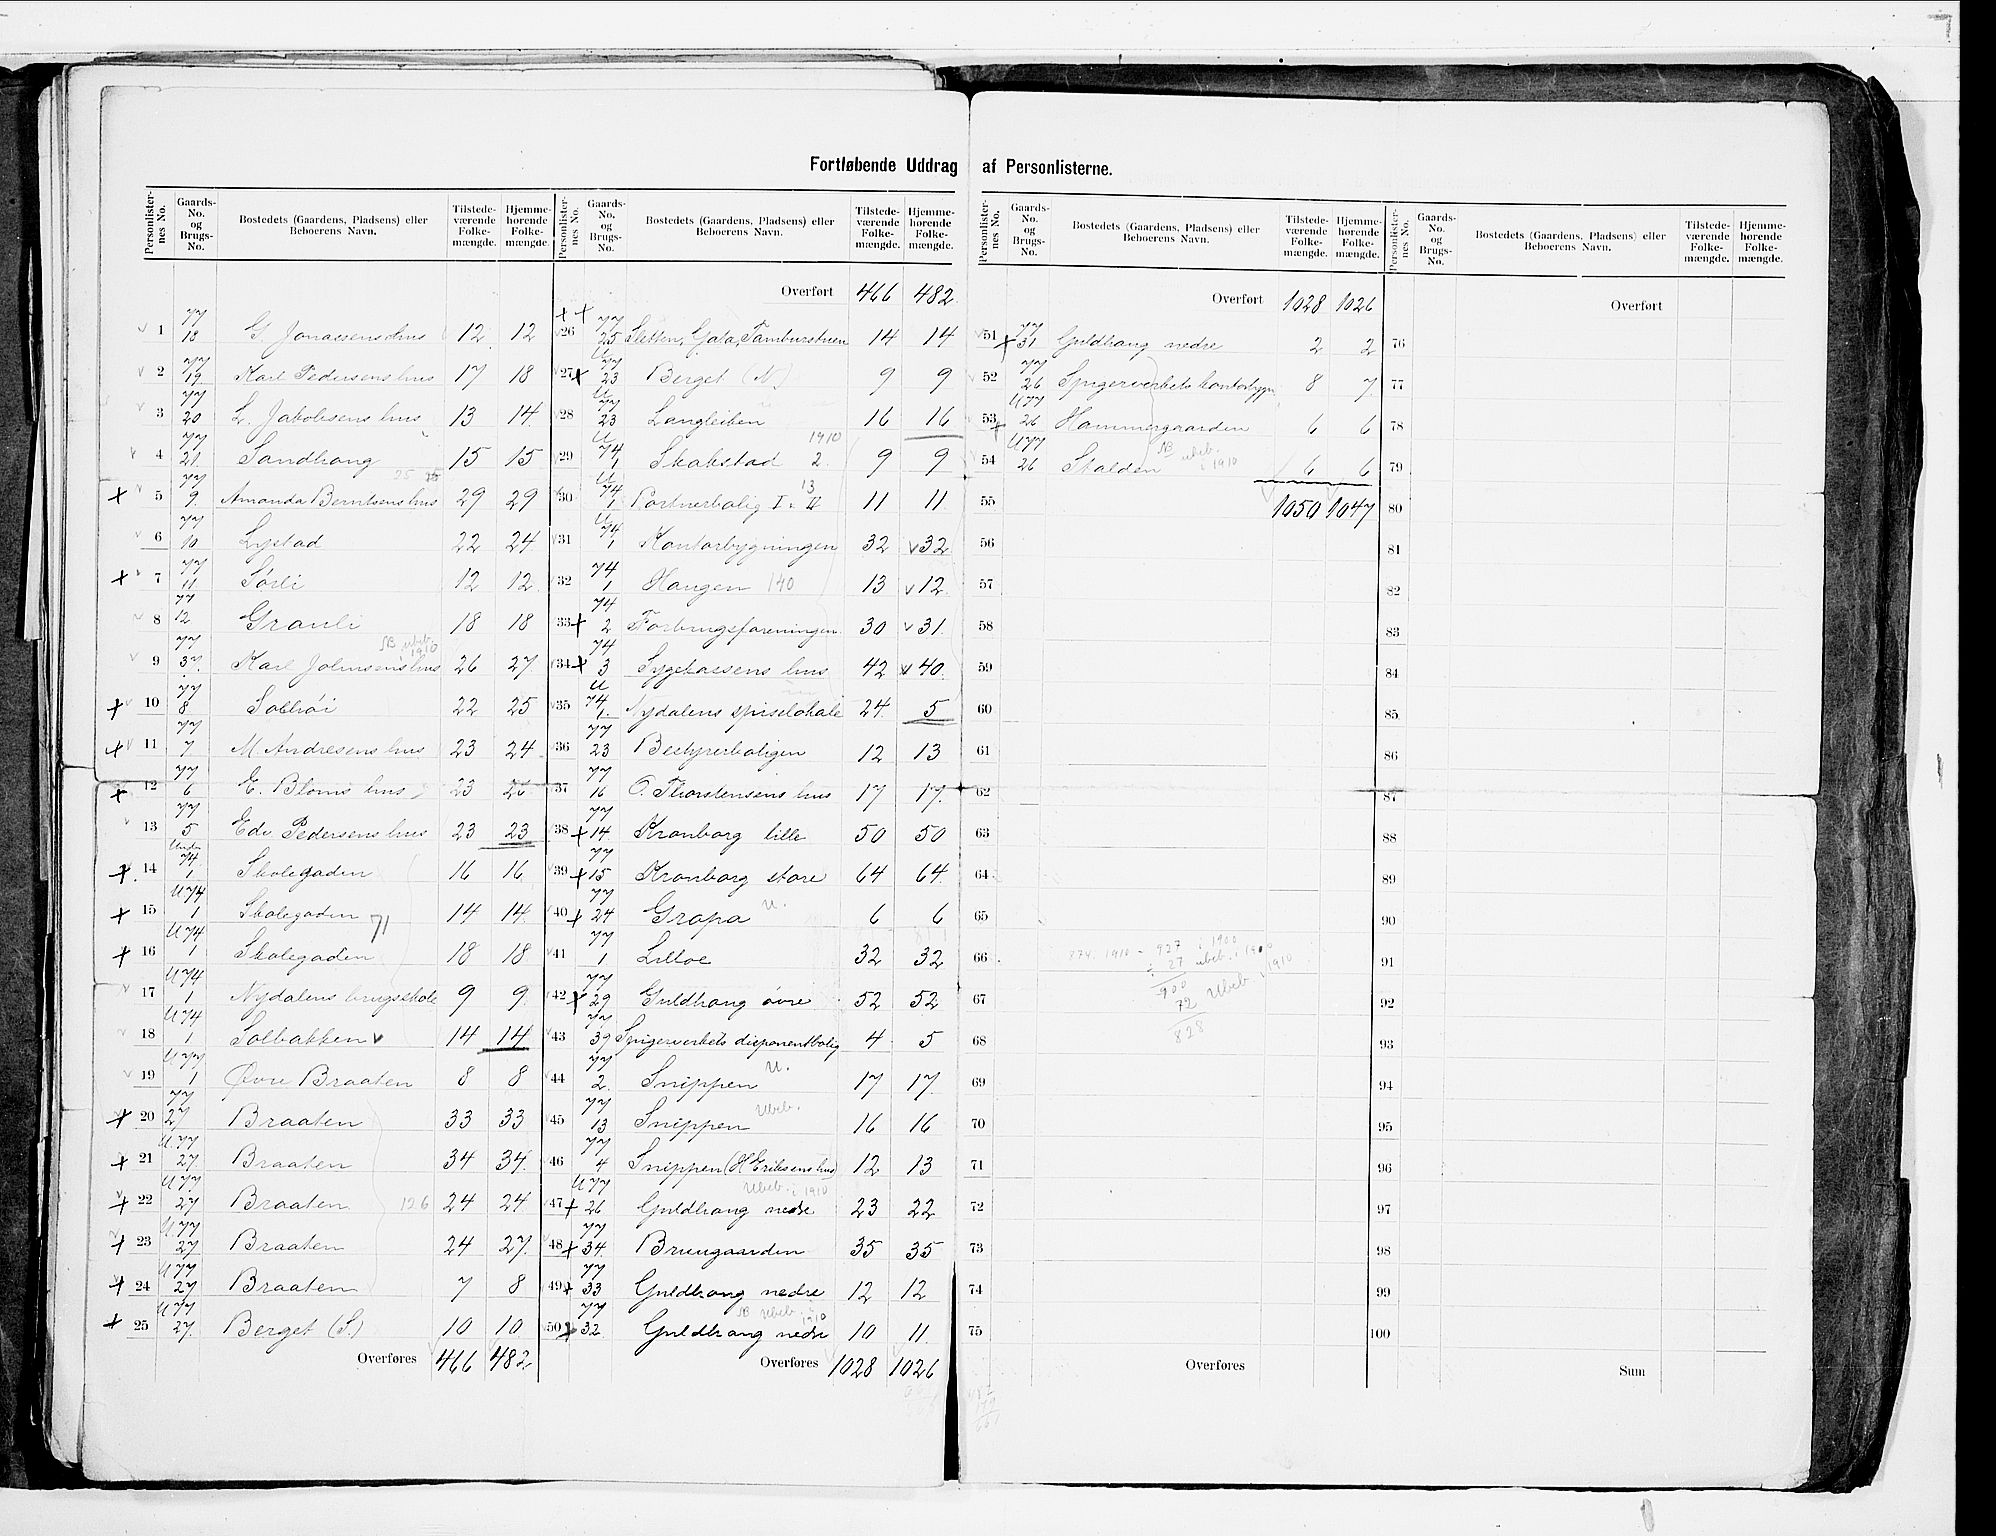 Fortløbende Uddrag af Personlisterne.
Personlister-nes No. Gaards-No. og Brugs-No. Bostedets (Gaardens, Pladsens) eller Beboerens Navn. Tilstede-værende Folke-mængde. Hjemme-hørende Folke-mængde.
1 77 18 G. Jonassens hus 12 12
2 77 19 Karl Pedersens hus 17 18
3 77 20 L. Jakobsens hus 13 14
4 77 21 Sandhaug 15 15
25 25
5 77 9 Amanda Berntsens hus 29 29
6 77 10 Lystad 22 24
7 77 11 Sørli 12 12
8 77 12 Granli 18 18
NB ubeb. 1910
9 77 37 Karl Johnsens hus 26 27
10 77 8 Solhøi 22 25
11 77 7 M. Andresens hus 23 24
12 77 6 E. Bloms hus 23 26
13 77 5 Edv. Pedersens hus 23 23
14 Under 74 1 Skolegaden 16 16
15 U 74 1 Skolegaden 14 14
71
16 U 74 1 Skolegaden 18 18
17 U 74 1 Nydalens brugsskole 9 9
18 U 74 1 Solbakken v 14 14
19 U 77 1 Øvre Braaten 8 8
20 77 27 Braaten 33 33
21 U 77 27 Braaten 34 34
22 U 77 27 Braaten 126 24 24
23 U 77 27 Braaten 24 27
24 U 77 27 Braaten 7 8
25 U 77 27 Berget (S.) 10 10
Overføres 466 482
Personlister-nes No. Gaards-No. og Brugs-No. Bostedets (Gaardens, Pladsens) eller Beboerens Navn. Tilstede-værende Folke-mængde. Hjemme-hørende Folke-mængde.
Overført 466 482
26 77 25 Sletten, Gata, Tamburstuen 14 14
27 U 77 23 Berget (N.) 9 9
28 U 77 23 Langleiken 16 16
1910
29 U 74 1 Skakstad 2 9 9
13
30 U 74 1 Portnerbolig I & II 11 11
31 U 74 1 Kontorbygningen 32 32
32 74 1 Haugen 140 13 12
33 74 2 Forbrugsforeningen 30 31
34 74 3 Sygekassens hus 42 40
35 U 74 1 Nydalens spiselokale 24 5
36 77 23 Bestyrerboligen 12 13
37 77 16 O. Thorstensens hus 17 17
38 77 14 Kronborg lille 50 50
39 77 15 Kronborg store 64 64
40 77 24 Gropa u. 6 6
41 77 1 Lilloe 32 32
42 77 29 Guldhaug øvre 52 52
43 77 39 Spigerverkets disponentbolig 4 5
44 77 2 Snippen u. 17 17
45 77 13 Snippen Ubeb. 16 16
46 77 4 Snippen (H Eriksens hus) 12 13
Ubeb. i 1910
47 U 77 26 Guldhaug nedre 23 22
48 77 34 Bruugaarden 35 35
49 77 33 Guldhaug nedre 12 12
NB Ubeb. i 1910
50 77 32 Guldhaug nedre 10 11
Overføres 1028 1026
Personlister-nes No. Gaards-No. og Brugs-No. Bostedets (Gaardens, Pladsens) eller Beboerens Navn. Tilstede-værende Folke-mængde. Hjemme-hørende Folke-mængde.
Overført 1028 1026
51 77 31 Guldhaug nedre 2 2
52 77 26 Spigerverkets kontorbygn 8 7
53 U 77 26 Hammergaarden 6 6
54 U 77 26 Stalden NB ubeb. i 1910 6 6
55 1050 1047
56
57
58
59
60
61
62
63
64
65
66
874. 1910 - 927 i 1900
÷ 27 ubeb. i 1900
900
72 Ubeb i 1910
828
67
68
69
70
71
72
73
74
75
Overføres
Personlister-nes No. Gaards-No. og Brugs-No. Bostedets (Gaardens, Pladsens) eller Beboerens Navn. Tilstede-værende Folke-mængde. Hjemme-hørende Folke-mængde.
Overført
76
77
78
79
80
81
82
83
84
85
86
87
88
89
90
91
92
93
94
95
96
97
98
99
100
Sum